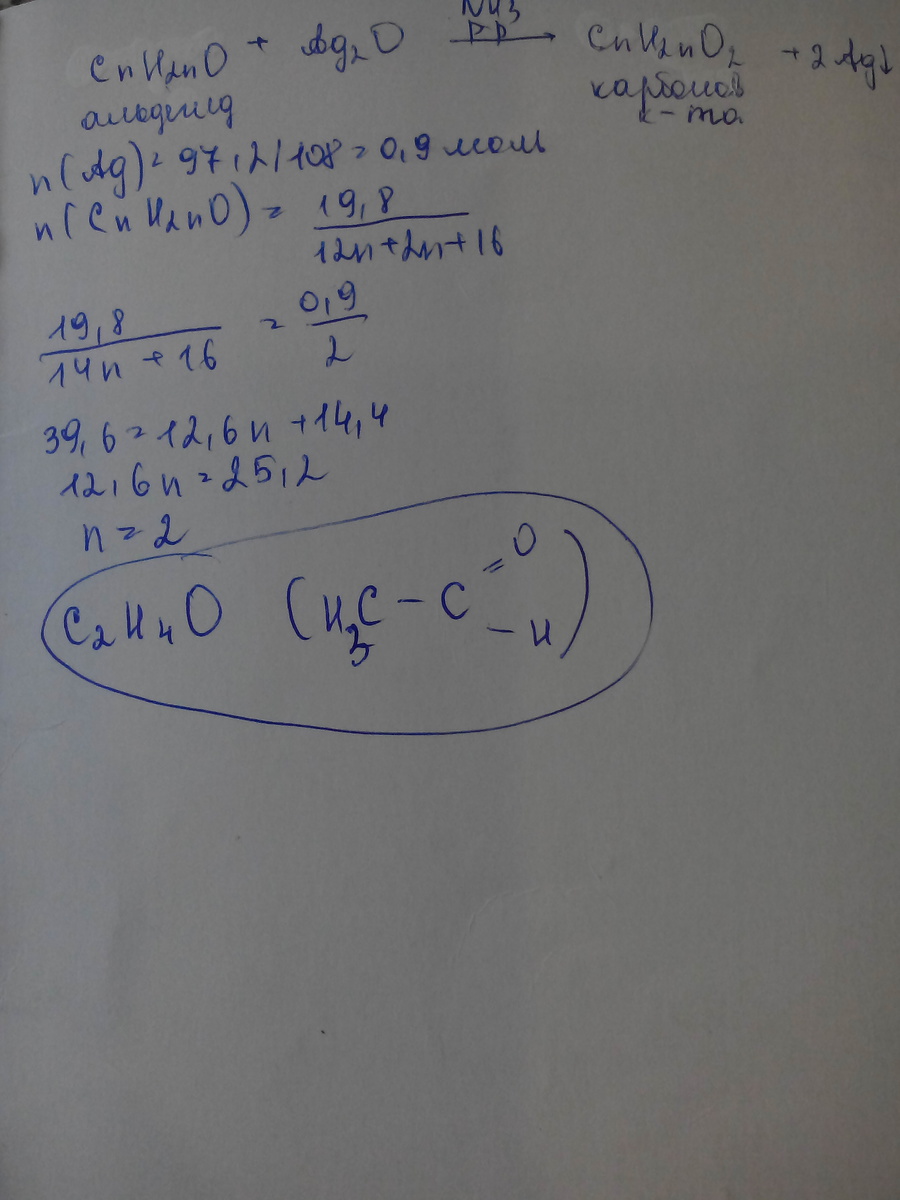 CnH2nO + Ag2O NH3 р-р → CnH2nO2 + 2Ag↓
альдегид карбонов к-та
n(Ag) = 97,2/108 = 0,9 моль
n(CnH2nO) = 19,8 / 12n+2n+16
19,8 / 14n + 16 = 0,9 / 2
39,6 = 12,6n + 14,4
12,6n = 25,2
n = 2
C2H4O (H3C – C =O –H)